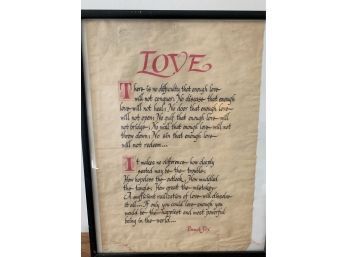 LOVE
There is no difficulty that enough love
will not conquer; No disease that enough
love will not heal; No door that enough love
will not open; No gulf that enough love
will not bridge; No wall that enough love will not
throw down; No sin that enough love
will not redeem...
It makes no difference how deeply
seated may be the trouble;
How hopeless the outlook, How muddled
the tangle; How great the mistake;
A sufficient realization of love will dissolve
it all... If only you could love enough you
would be the happiest and most powerful
being in the world...